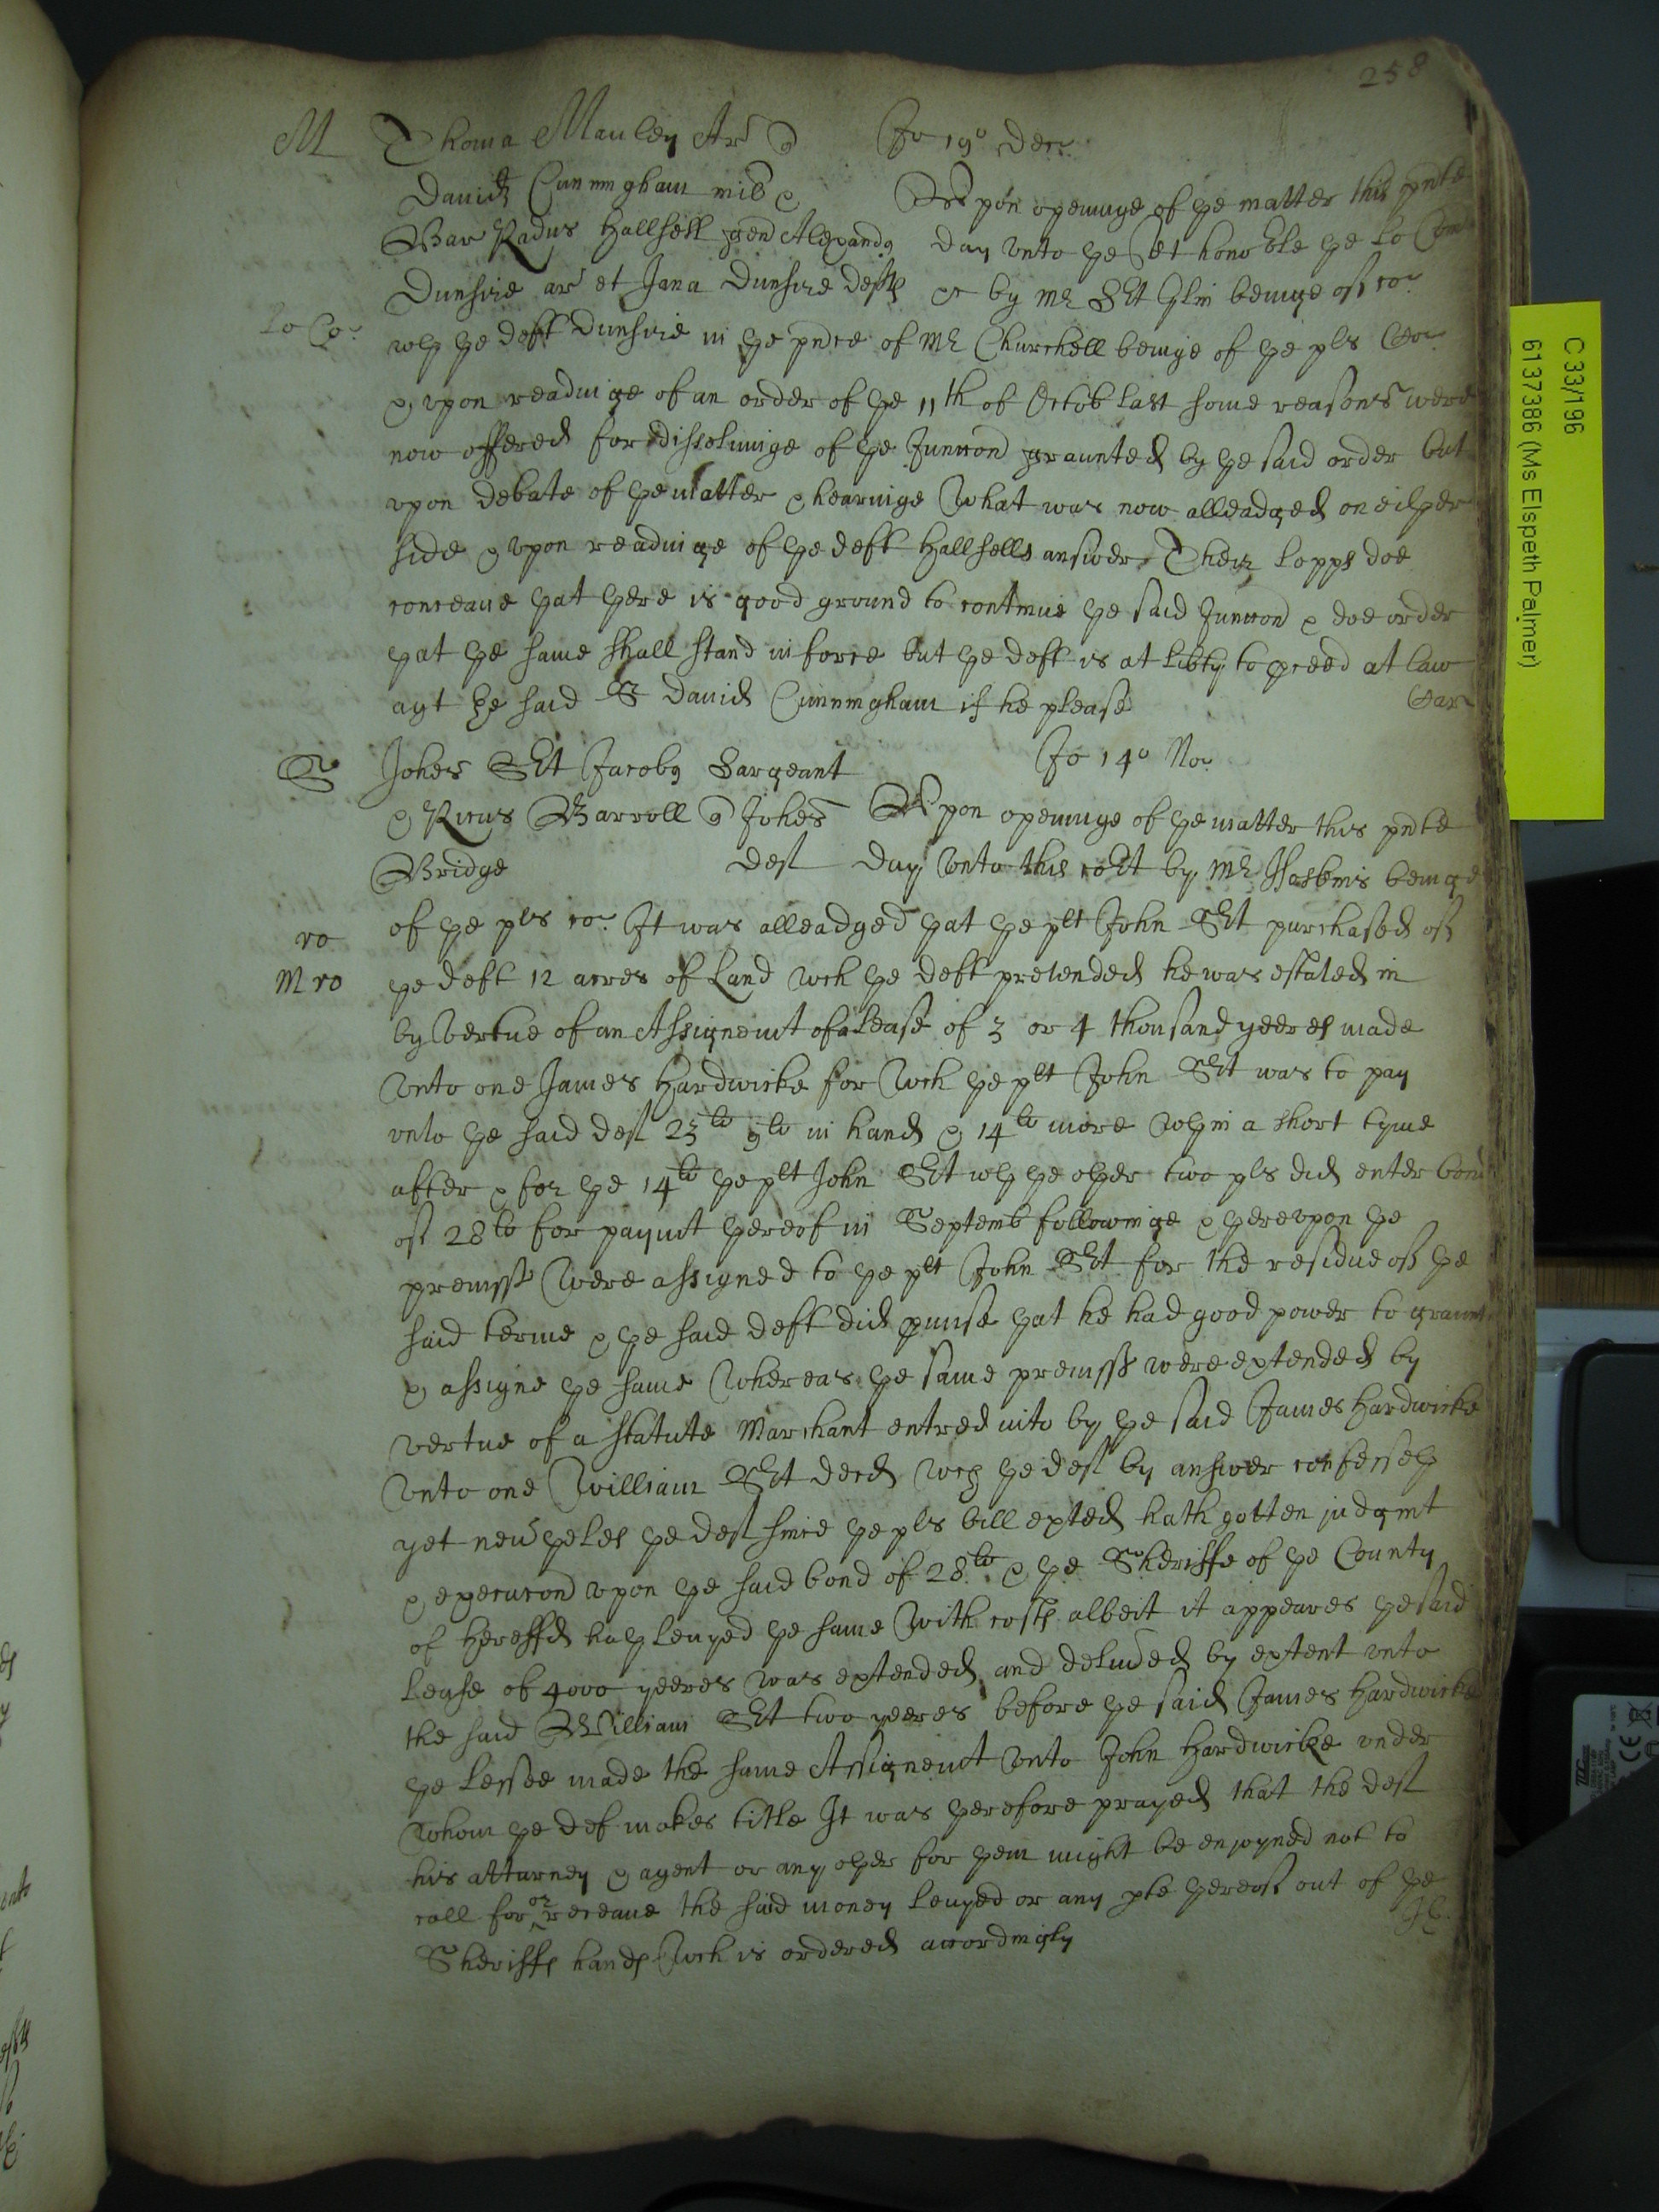 258
M Thoma Manley Ar q Jo 19o Dec
David Cuningham mil &
Bar Radus Hallsell gen Alexandr
Dunsire ar et Jana Dunsire defts
Vpon openinge of ye matter this pnte
day vnto ye Rt honoble ye Lo Com
& by Mr Srt Glin beinge of co
Lo Co
wth ye deft Dunsire in ye pnce of Mr Churchell beinge of ye pls Co
& vpon readinge of an order of ye 11th of Octob last some reasons were
now offered for dissoluinge of ye Iniuncon graunted by ye said order but
vpon debate of ye matter & hearinge what was now alleadged on eiyer
side & vpon readinge of ye deft Hallsells answer Their Lopps doe
conceaue yat yere is good ground to continue ye said Iniuncon & doe order
yat ye same shall stand in force but ye deft is at libty to pceed at law
agt ye said Sr Dauid Cuningham if he please
Car
S Johes Srt Jacobq Sargeant Jo 14o No
& Ricus Barroll q Johes
Bridge Def
Vpon openinge of ye matter this pnte
day vnto this cort by Mr Hoskins beinge
of ye pls co It was alleadged yat ye plt John Srt purchased of
ro
M ro
ye deft 12 acres of Land wch ye deft pretended he was estated in
by vertue of an Assignemt of a Lease of 3 or 4 thousand yeeres made
vnto one James Hardwicke for wch ye plt John Srt was to pay
vnto ye said def 23lb 9lb in hand & 14lb more wyin a short tyme
after & for ye 14lb ye plt John Srt wy ye oyer two pls did enter bond
of 28lb for paymt yereof in Septemb followinge & yerevpon ye
premisses were assigned to ye plt John Srt for the residue of ye
said terme & ye said deft did pmise yat he had good power to graunt
& assigne ye same whereas ye same premisss were extended by
vertue of a statute Marchant entred into by ye said James Hardwicke
vnto one William Srt decd wch ye def by answer confessey
yet neuyeles ye def since ye pls bill exted hath gotten iudgmt
& execucon vpon ye said bond of 28lb & ye Sheriffe of ye County
of Hereffd hay leuyed ye same with costs albeit it appeares ye said
Lease of 4000 yeeres was extended and deliuded by extent vnto
the said William Srt two yeeres before ye said James Hardwicke
ye Lessee made the same Assignemt vnto John Hardwicke vnder
whom ye def makes title It was yerefore prayed that the def
his atturney & agent or any oyer for yem might be enioyned not to
call for or receaue the said money leuyed or any pte yereof out of ye
Sheriffs hands wch is ordered accordingly
C 33/196
6137386 (Ms Elspeth Palmer)